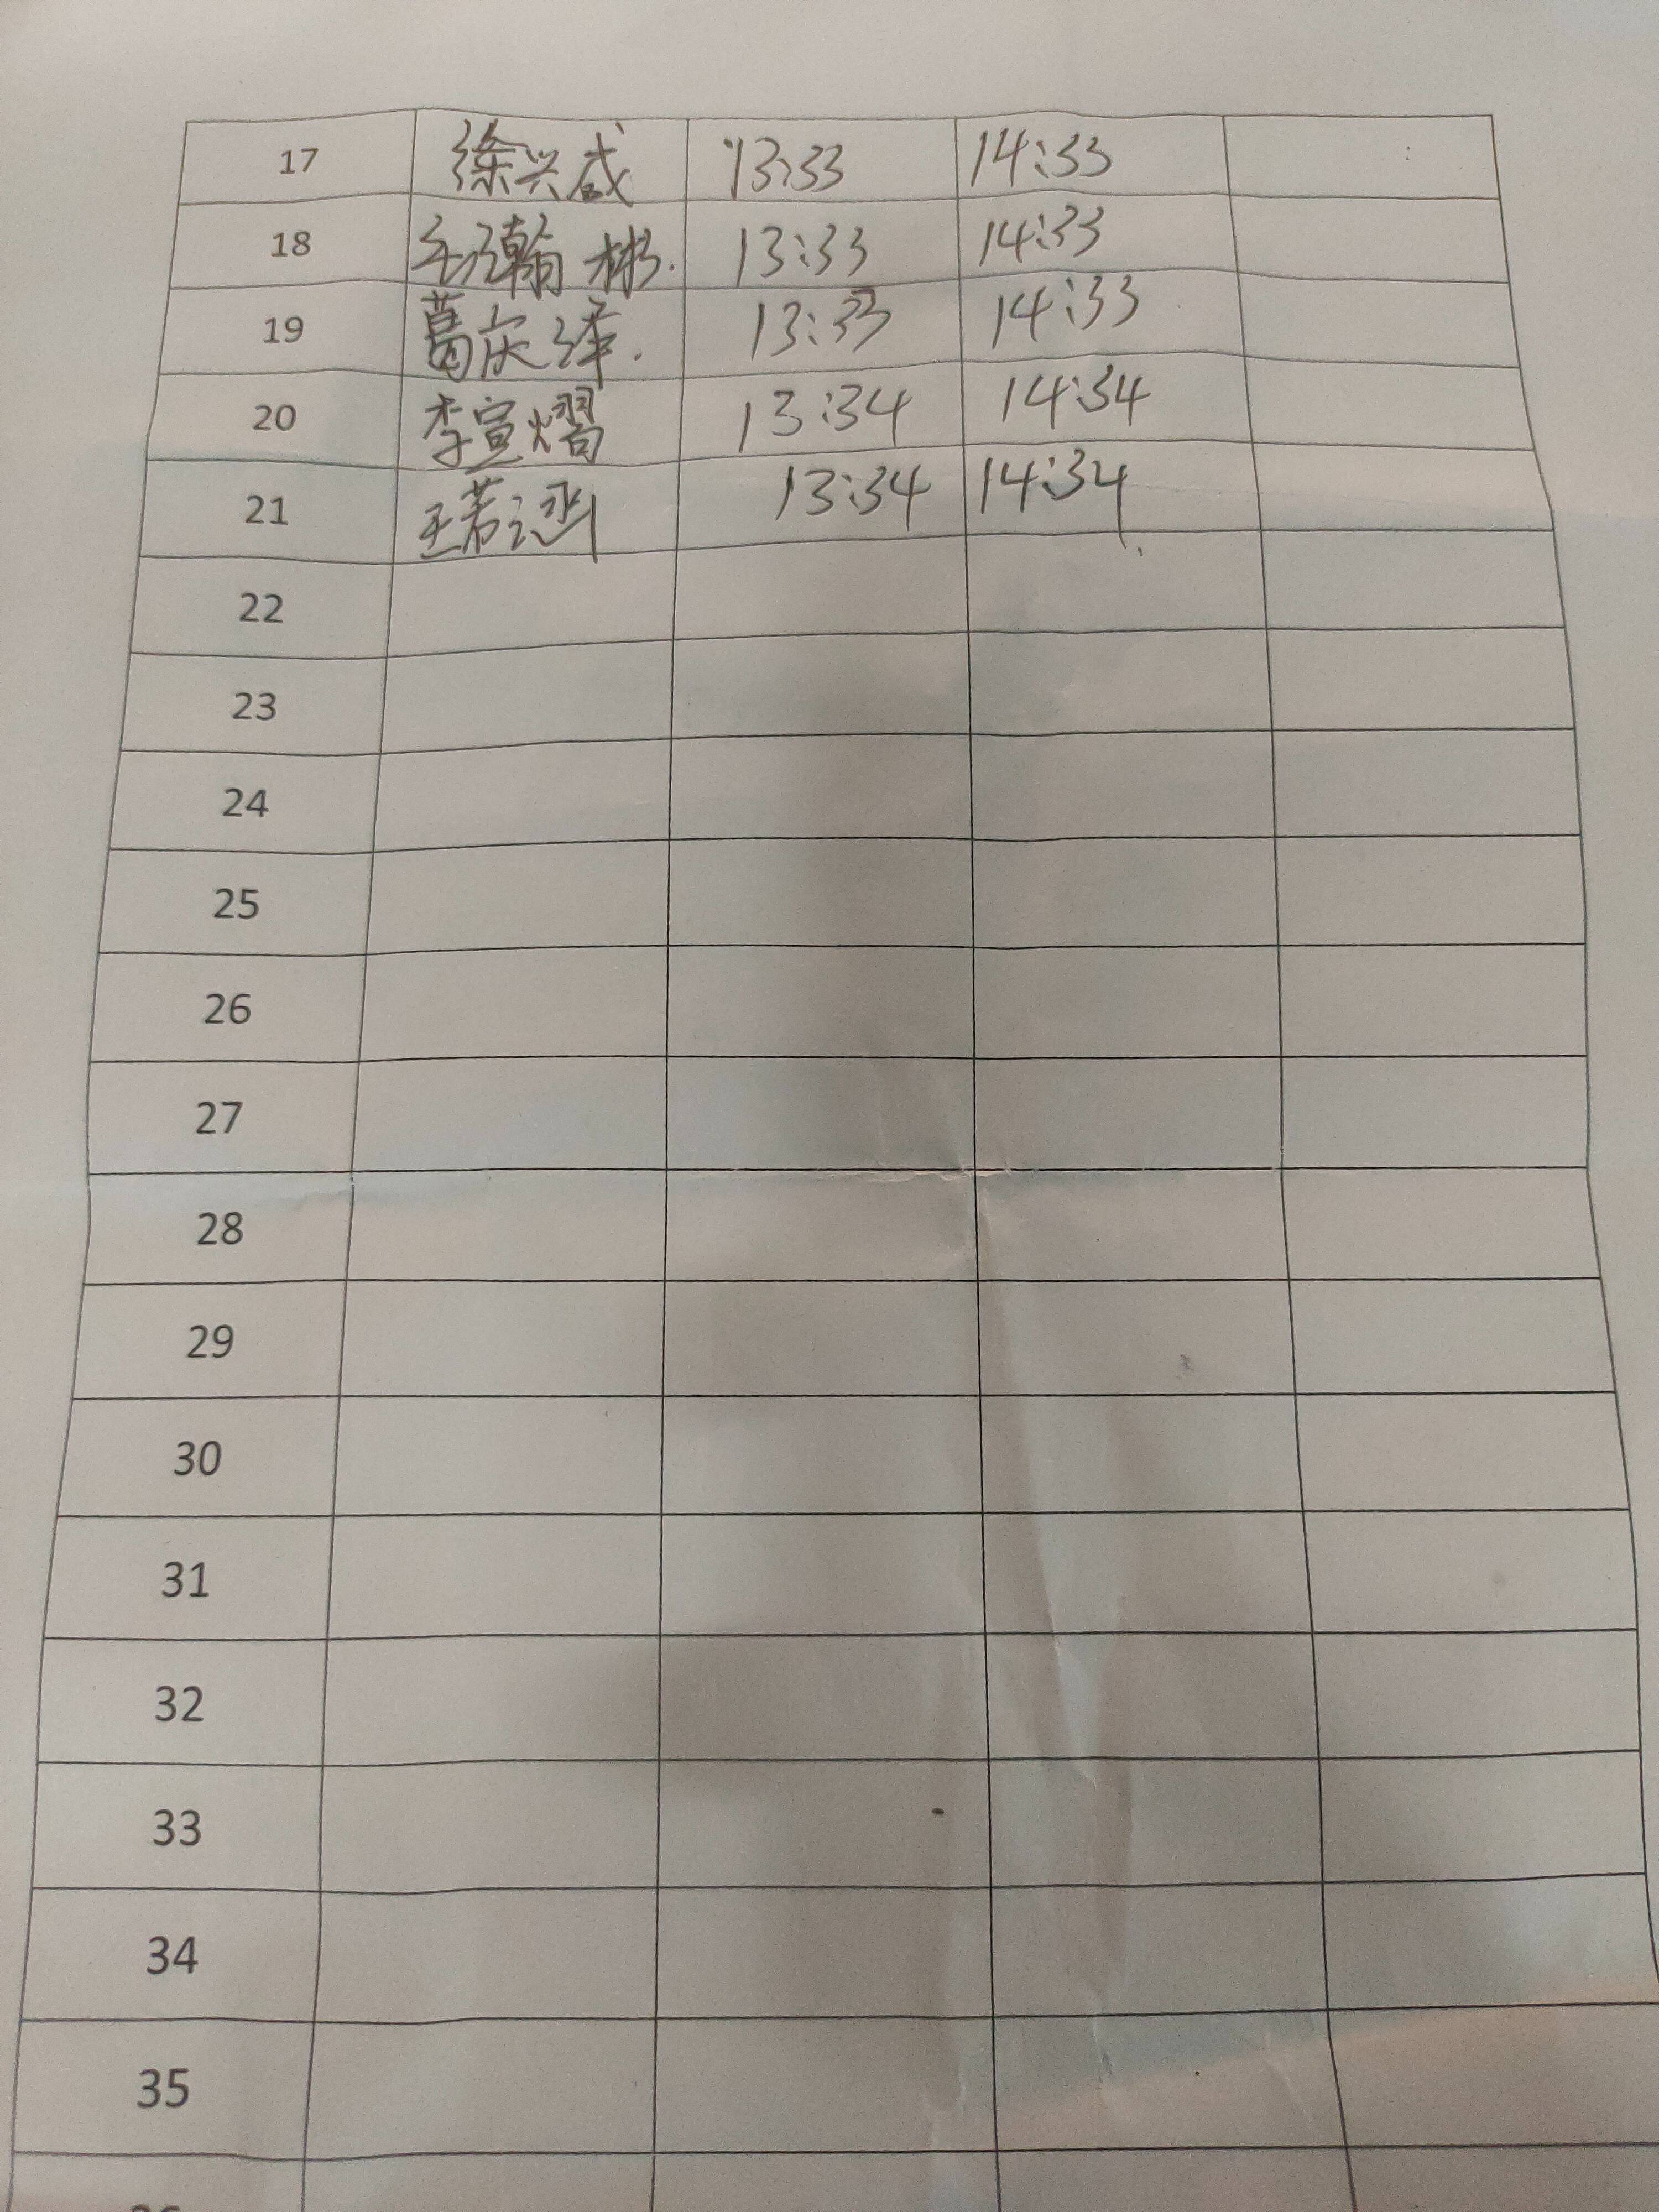 17 徐兴盛 13:33 14:33
18 王瀚彬. 13:33 14:33
19 葛庆泽. 13:33 14:33
20 李宣熠 13:34 14:34
21 王若涵 13:34 14:34
22
23
24
25
26
27
28
29
30
31
32
33
34
35